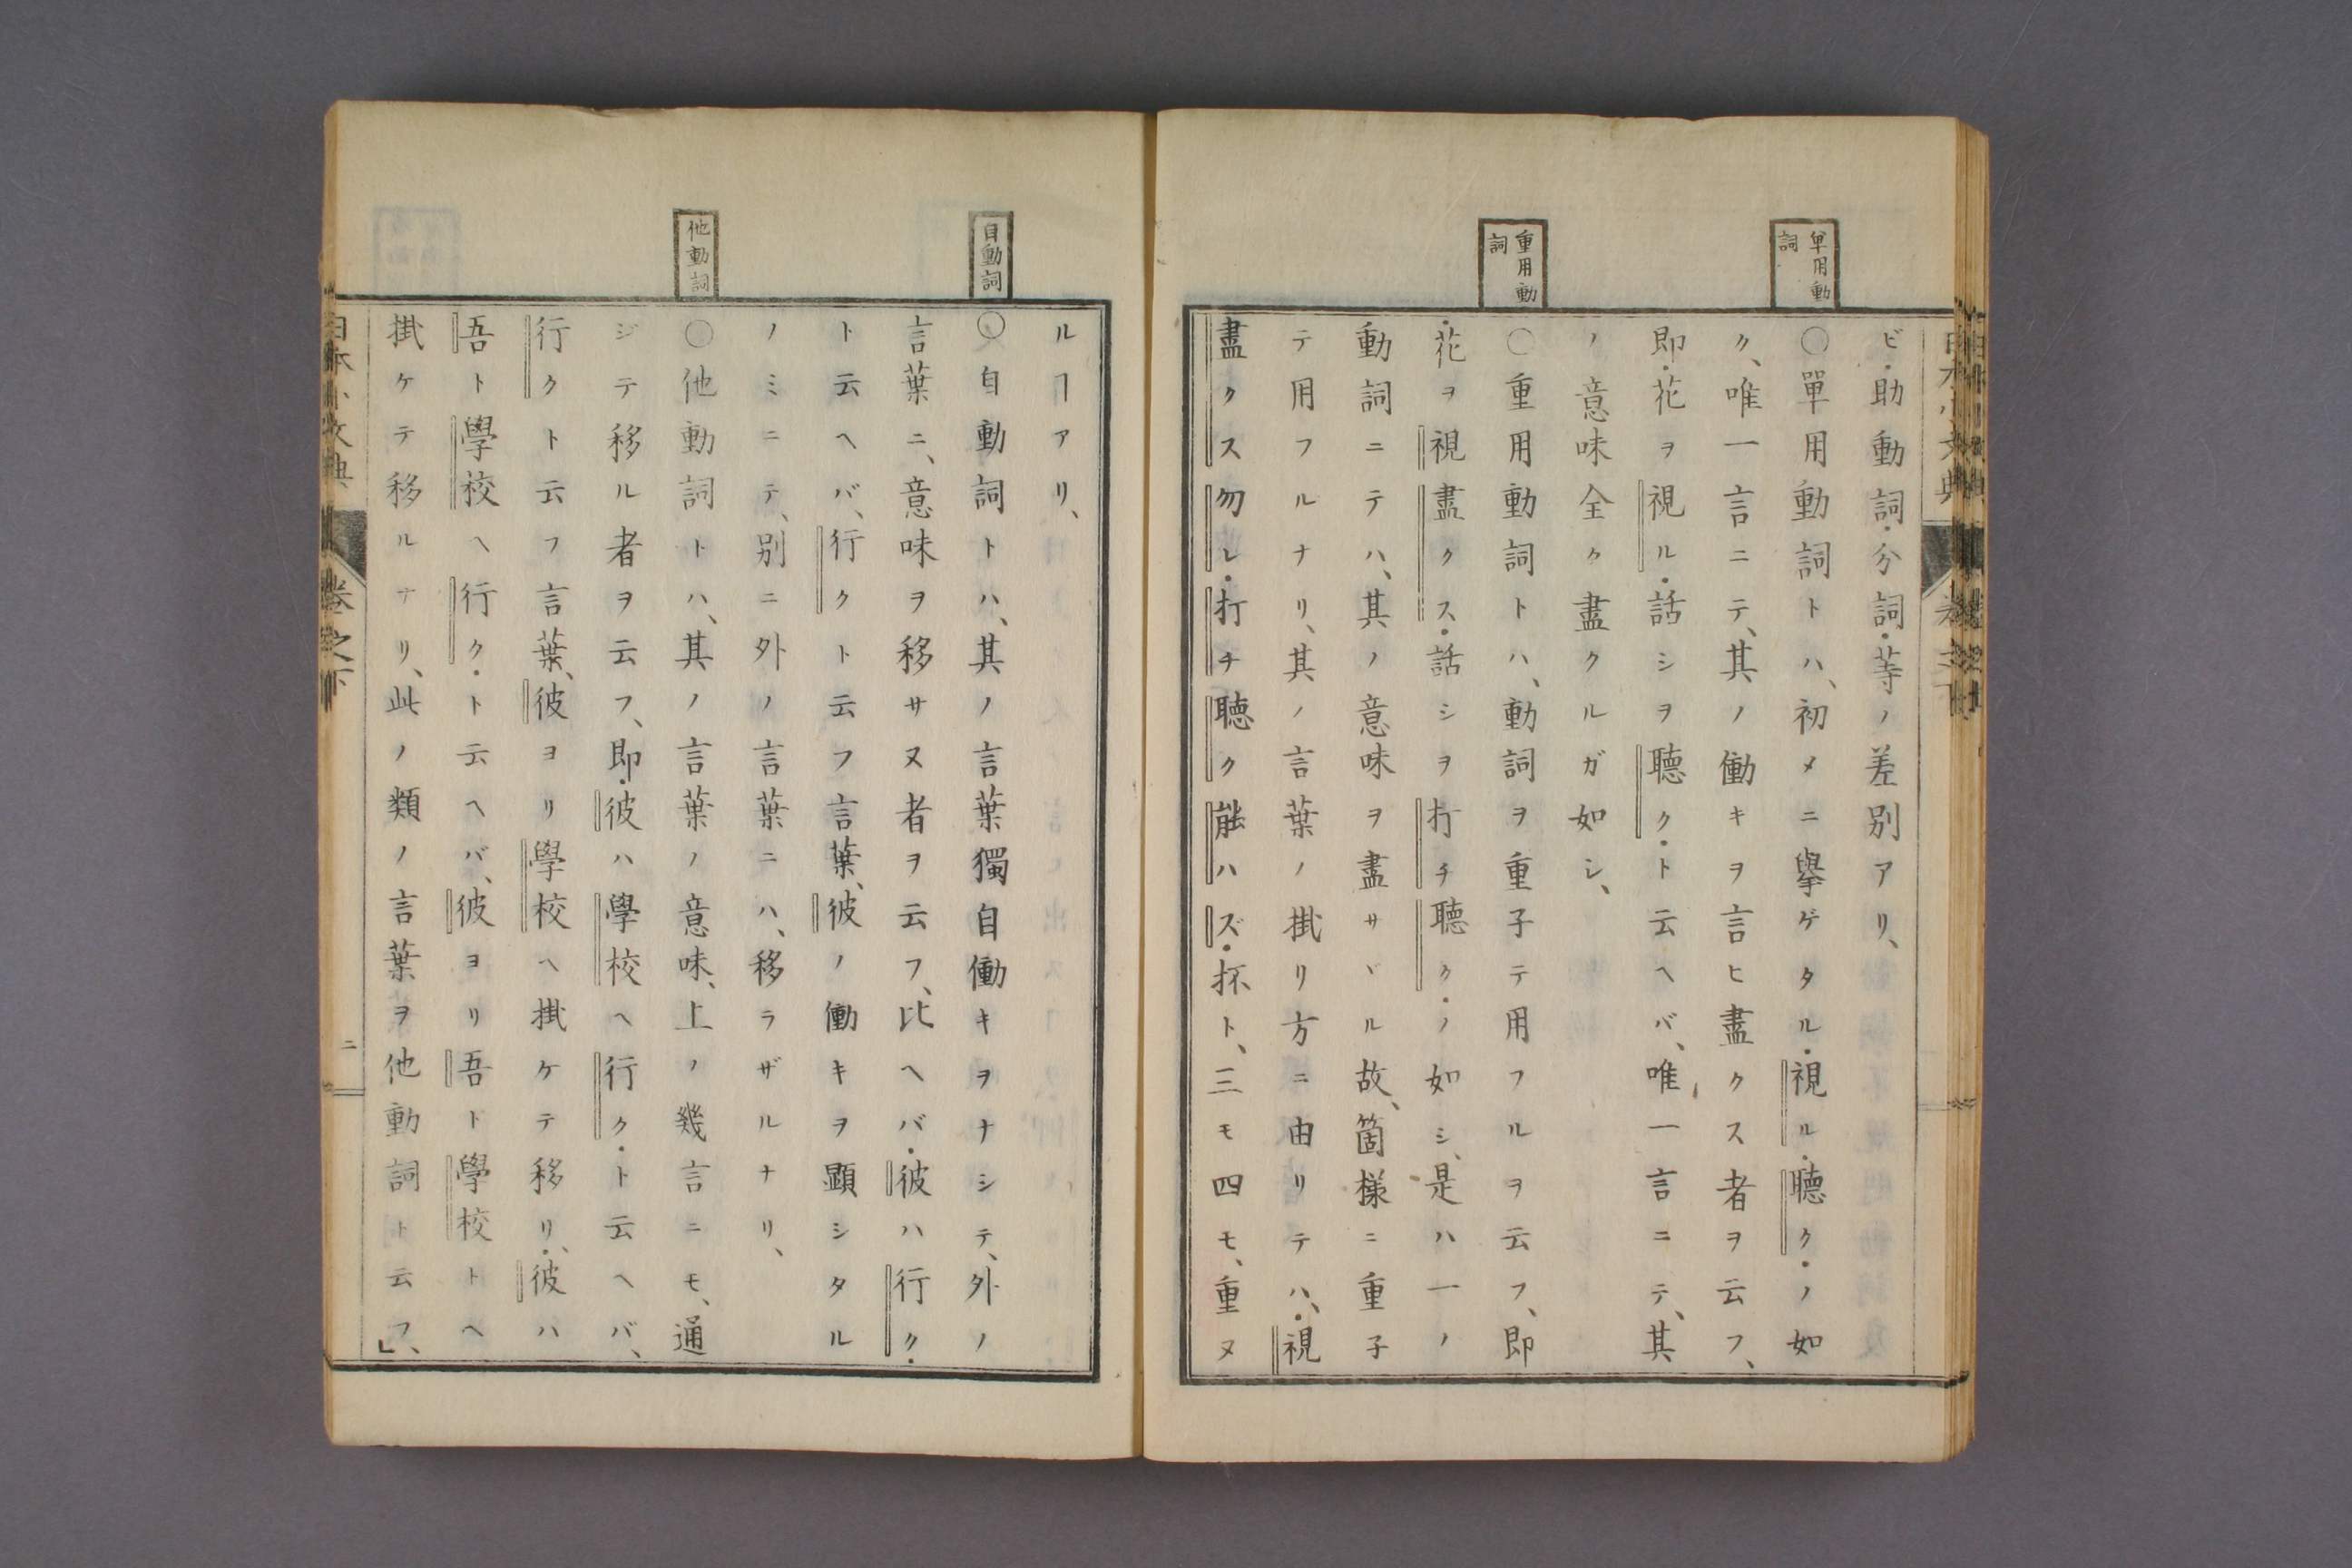 單用動詞
重用動詞
ビ・助動詞・分詞・等ノ差別アリ、
〇單用動詞トハ、初メニ擧ゲタル・視ル・聽ク・ノ如
ク、唯一言ニテ、其ノ働キヲ言ヒ盡クス者ヲ云フ、
即・花ヲ視ル・話シヲ聽ク・ト云ヘバ、唯一言ニテ、其
ノ意味全ク盡クルガ如シ、
〇重用動詞トハ、動詞ヲ重子テ用フルヲ云フ、即
・花ヲ視盡クス・話シヲ打チ聽ク・ノ如シ、是ハ一ノ
動詞ニテハ、其ノ意味ヲ盡サヾル故、箇樣ニ重子
テ用フルナリ、其ノ言葉ノ掛リ方ニ由リテハ、・視
盡クス勿レ・打チ聽ク能ハズ・抔ト、三モ四モ、重ヌ
自動詞
他動詞
ルヿアリ、
〇自動詞トハ、其ノ言葉獨自働キヲナシテ、外ノ
言葉ニ、意味ヲ移サヌ者ヲ云フ、比ヘバ・彼ハ行ク・
ト云ヘバ、行クト云フ言葉、彼ノ働キヲ顯シタル
ノミニテ、別ニ外ノ言葉ニハ、移ラザルナリ、
〇他動詞トハ、其ノ言葉ノ意味、上ノ幾言ニモ、通
ジテ移ル者ヲ云フ、即・彼ハ學校ヘ行ク・ト云ヘバ、
行クト云フ言葉、彼ヨリ學校ヘ掛ケテ移リ、・彼ハ
吾ト學校ヘ行ク・ト云ヘバ、彼ヨリ吾ト學校トヘ
掛ケテ移ルナリ、此ノ類ノ言葉ヲ他動詞ト云フ、」
日本小文典 卷之下 二